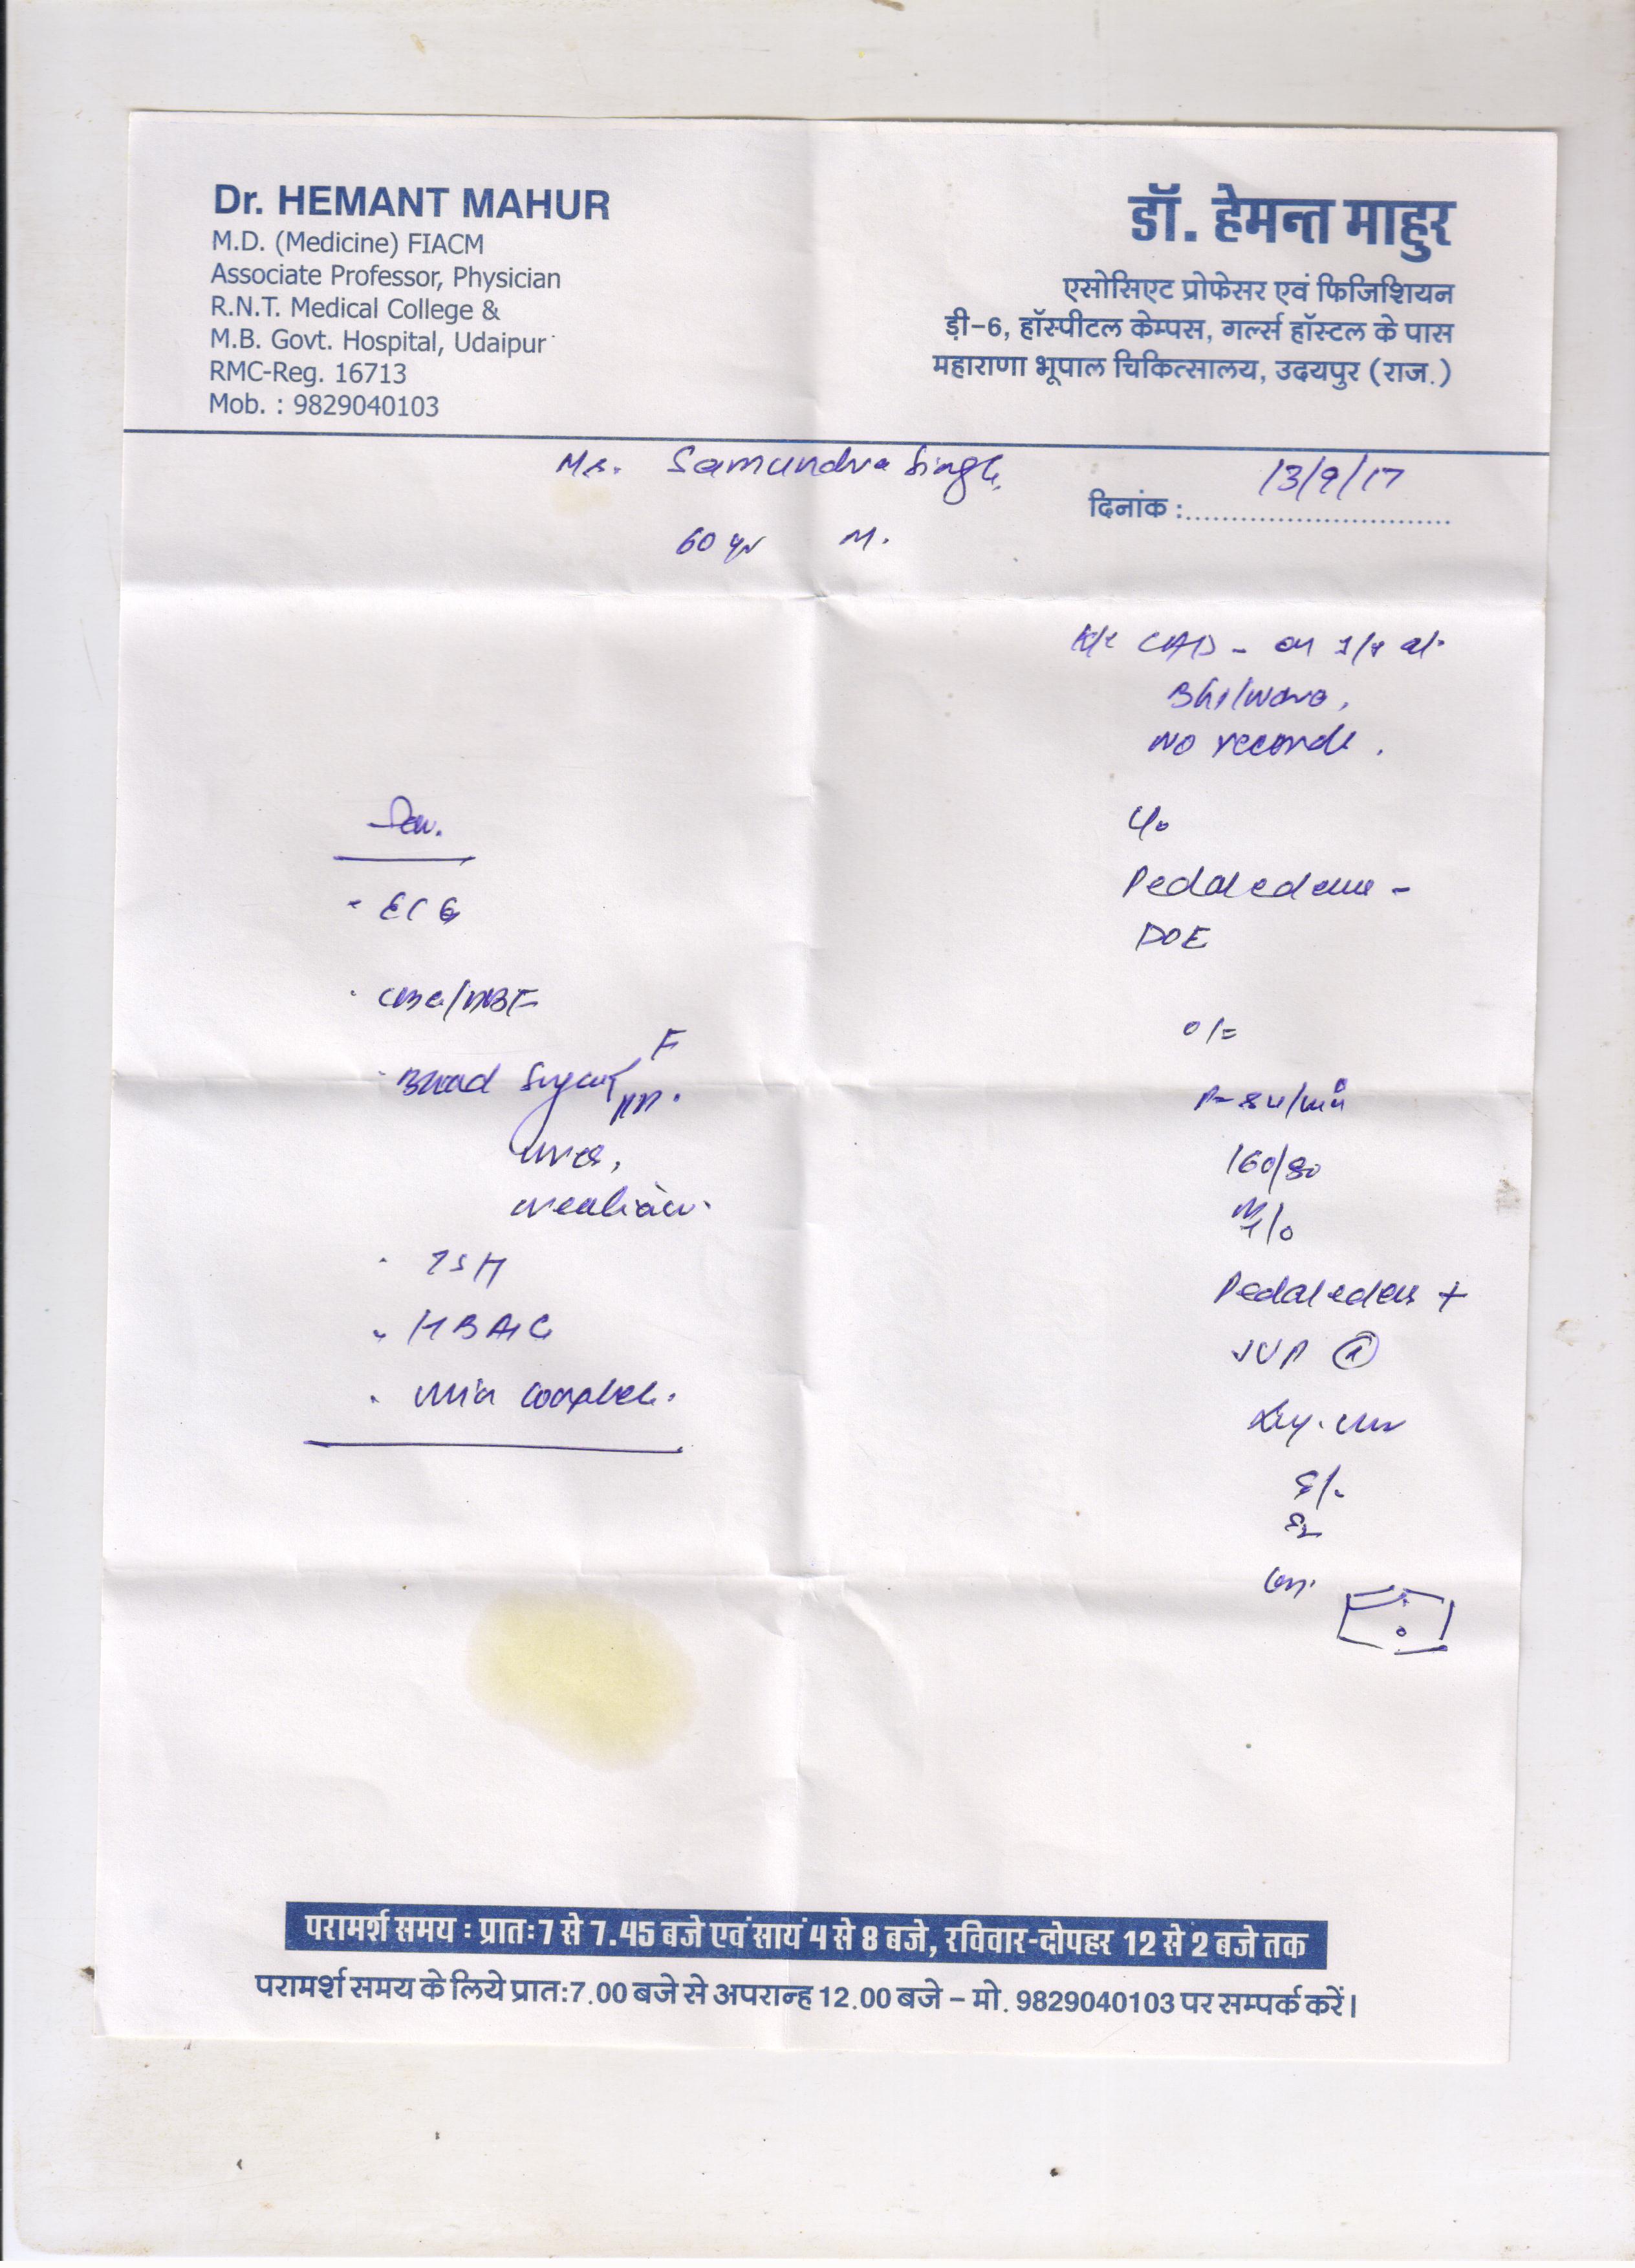 Dr. HEMANT MAHUR
M.D. (Medicine) FIACM
Associate Professor, Physician
R.N.T. Medical College &
M.B. Govt. Hospital, Udaipur
RMC-Reg. 16713
Mob. : 9829040103
डॉ. हेमन्त माहुर
एसोसिएट प्रोफेसर एवं फिजिशियन
ड़ी-6, हॉस्पीटल केम्पस, गर्ल्स हॉस्टल के पास
महाराणा भूपाल चिकित्सालय, उदयपुर (राज.)
Mr. Samundra Singh
दिनांक : 13/9/17
60 yr M.
K/c CAD - on
Bhilwara,
No records.
C/o
Pedal edema -
DOE
O/E
P- 84/min
160/80
Pedal edema +
JVP
S1
S2
Inv.
- ECG
- CBC/PBF
- Blood Sugar F
PP.
Urea,
creatinin.
- TSH
- HBA1C
- Urin complete.
परामर्श समय : प्रातः7 से 7.45 बजे एवं सायं 4 से 8 बजे, रविवार-दोपहर 12 से 2 बजे तक
परामर्श समय के लिये प्रातः7.00 बजे से अपरान्ह 12.00 बजे – मो. 9829040103 पर सम्पर्क करें।